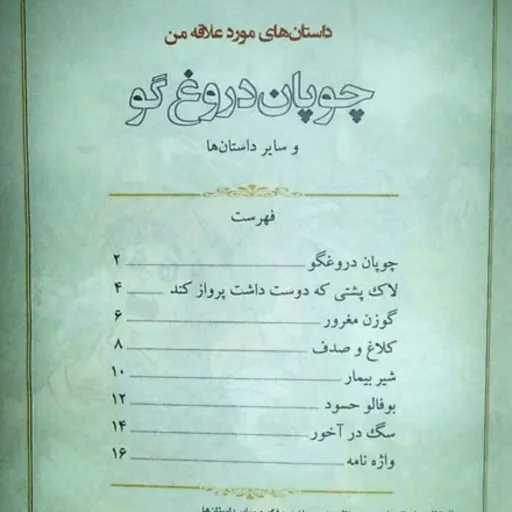 داستان‌های مورد علاقه من
چوپان دروغ گو
و سایر داستان‌ها
فهرست
چوپان دروغگو ۲
لاک پشتی که دوست داشت پرواز کند ۴
گوزن مغرور ۶
کلاغ و صدف ۸
شیر بیمار ۱۰
بوفالو حسود ۱۲
سگ در آخور ۱۴
واژه نامه ۱۶
و سایر داستان‌ها